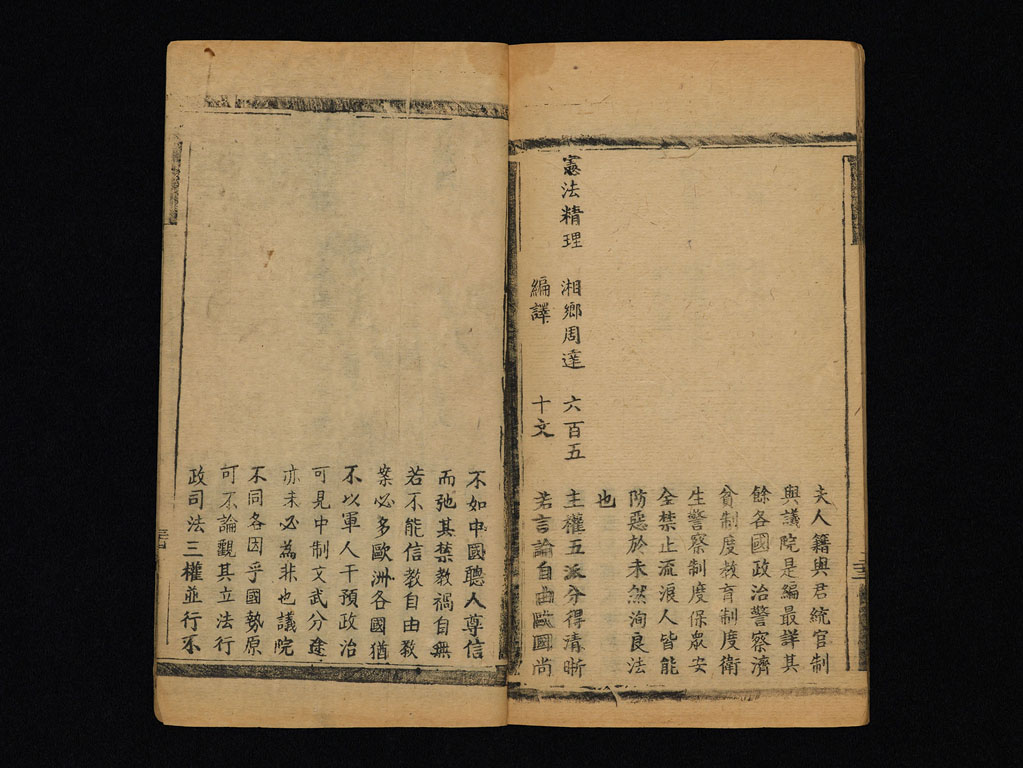 夫人籍與君統官制
與議院是編最詳其
餘各國政治警察濟
貧制度教育制度衛
生警察制度保衆安
全禁止流浪人皆能
防惡於未然洵良法
也
憲法精理 湘鄉周逵 六百五 主權五派分得清晰
編譯 十文 若言論自由歐國尚
不如中國聽人尊信
而弛其禁教禍自無
若不能信教自由教
案必多歐洲各國猶
不以軍人干預政治
可見中制文武分途
亦未必為非也議院
不同各因乎國勢原
可不論觀其立法行
政司法三權並行不